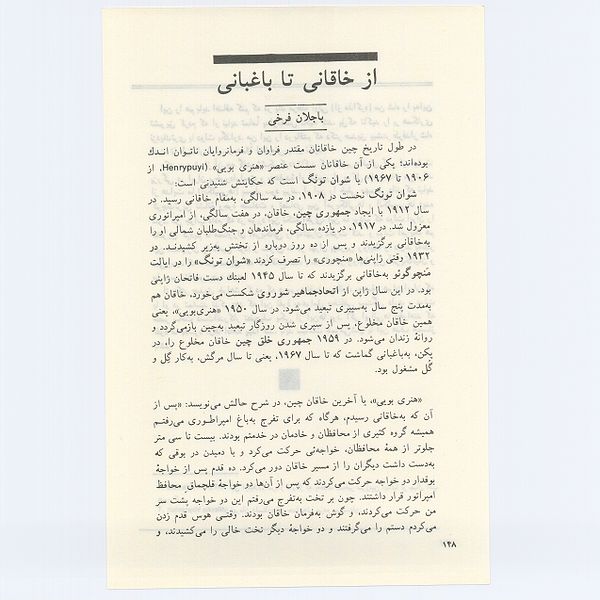 از خاقانی تا باغبانی
باجلان فرخی
در طول تاریخ چین خاقانان مقتدر فراوان و فرمانروایان ناتوان اندك
بوده‌اند؛ یکی از آن خاقانان سست عنصر «هنری بویی» (Henrypuyi، از
۱۹۰۶ تا ۱۹۶۷) یا شوان تونگ است که حکایتش شنیدنی است:
شوان تونگ نخست در ۱۹۰۸، در سه سالگی، به‌مقام خاقانی رسید. در
سال ۱۹۱۲ با ایجاد جمهوری چین، خاقان، در هفت سالگی، از امپراتوری
معزول شد. در ۱۹۱۷، در یازده سالگی، فرماندهان و جنگ‌طلبان شمالی او را
به‌خاقانی برگزیدند و پس از ده روز دوباره از تختش به‌زیر کشیدند. در
۱۹۳۲ وقتی ژاپنی‌ها «منچوری» را تصرف کردند «شوان تونگ» را در ایالت
مَنچوگوئو به‌خاقانی برگزیدند که تا سال ۱۹۴۵ لعبتك دست فاتحان ژاپنی
بود. در این سال ژاپن از اتحادجماهیر شوروی شکست می‌خورد، خاقان هم
به‌مدت پنج سال به‌سیبری تبعید می‌شود. در سال ۱۹۵۰ «هنری‌بویی»، یعنی
همین خاقان مخلوع، پس از سپری شدن روزگار تبعید به‌چین بازمی‌گردد و
روانهٔ زندان می‌شود. در ۱۹۵۹ جمهوری خلق چین خاقان مخلوع را، در
پکن، به‌باغبانی گماشت که تا سال ۱۹۶۷، یعنی تا سال مرگش، به‌کار گِل و
گُل مشغول بود.
«هنری بویی»، یا آخرین خاقان چین، در شرح حالش می‌نویسد: «پس از
آن که به‌خاقانی رسیدم، هرگاه که برای تفرج به‌باغ امپراطوری می‌رفتم
همیشه گروه کثیری از محافظان و خادمان در خدمتم بودند. بیست تا سی متر
جلوتر از همهٔ محافظان، خواجه‌ئی حرکت می‌کرد و با دمیدن در بوقی که
به‌دست داشت دیگران را از مسیر خاقان دور می‌کرد. ده قدم پس از خواجهٔ
بوقدار دو خواجه حرکت می‌کردند که پس از آن‌ها دو خواجهٔ قلچماقِ محافظ
امپراتور قرار داشتند. چون بر تخت به‌تفرج می‌رفتم این دو خواجه پشت سر
من حرکت می‌کردند، و گوش به‌فرمان خاقان بودند. وقتی هوس قدم زدن
می‌کردم دستم را می‌گرفتند و دو خواجهٔ دیگر تخت خالی را می‌کشیدند، و
۱۴۸